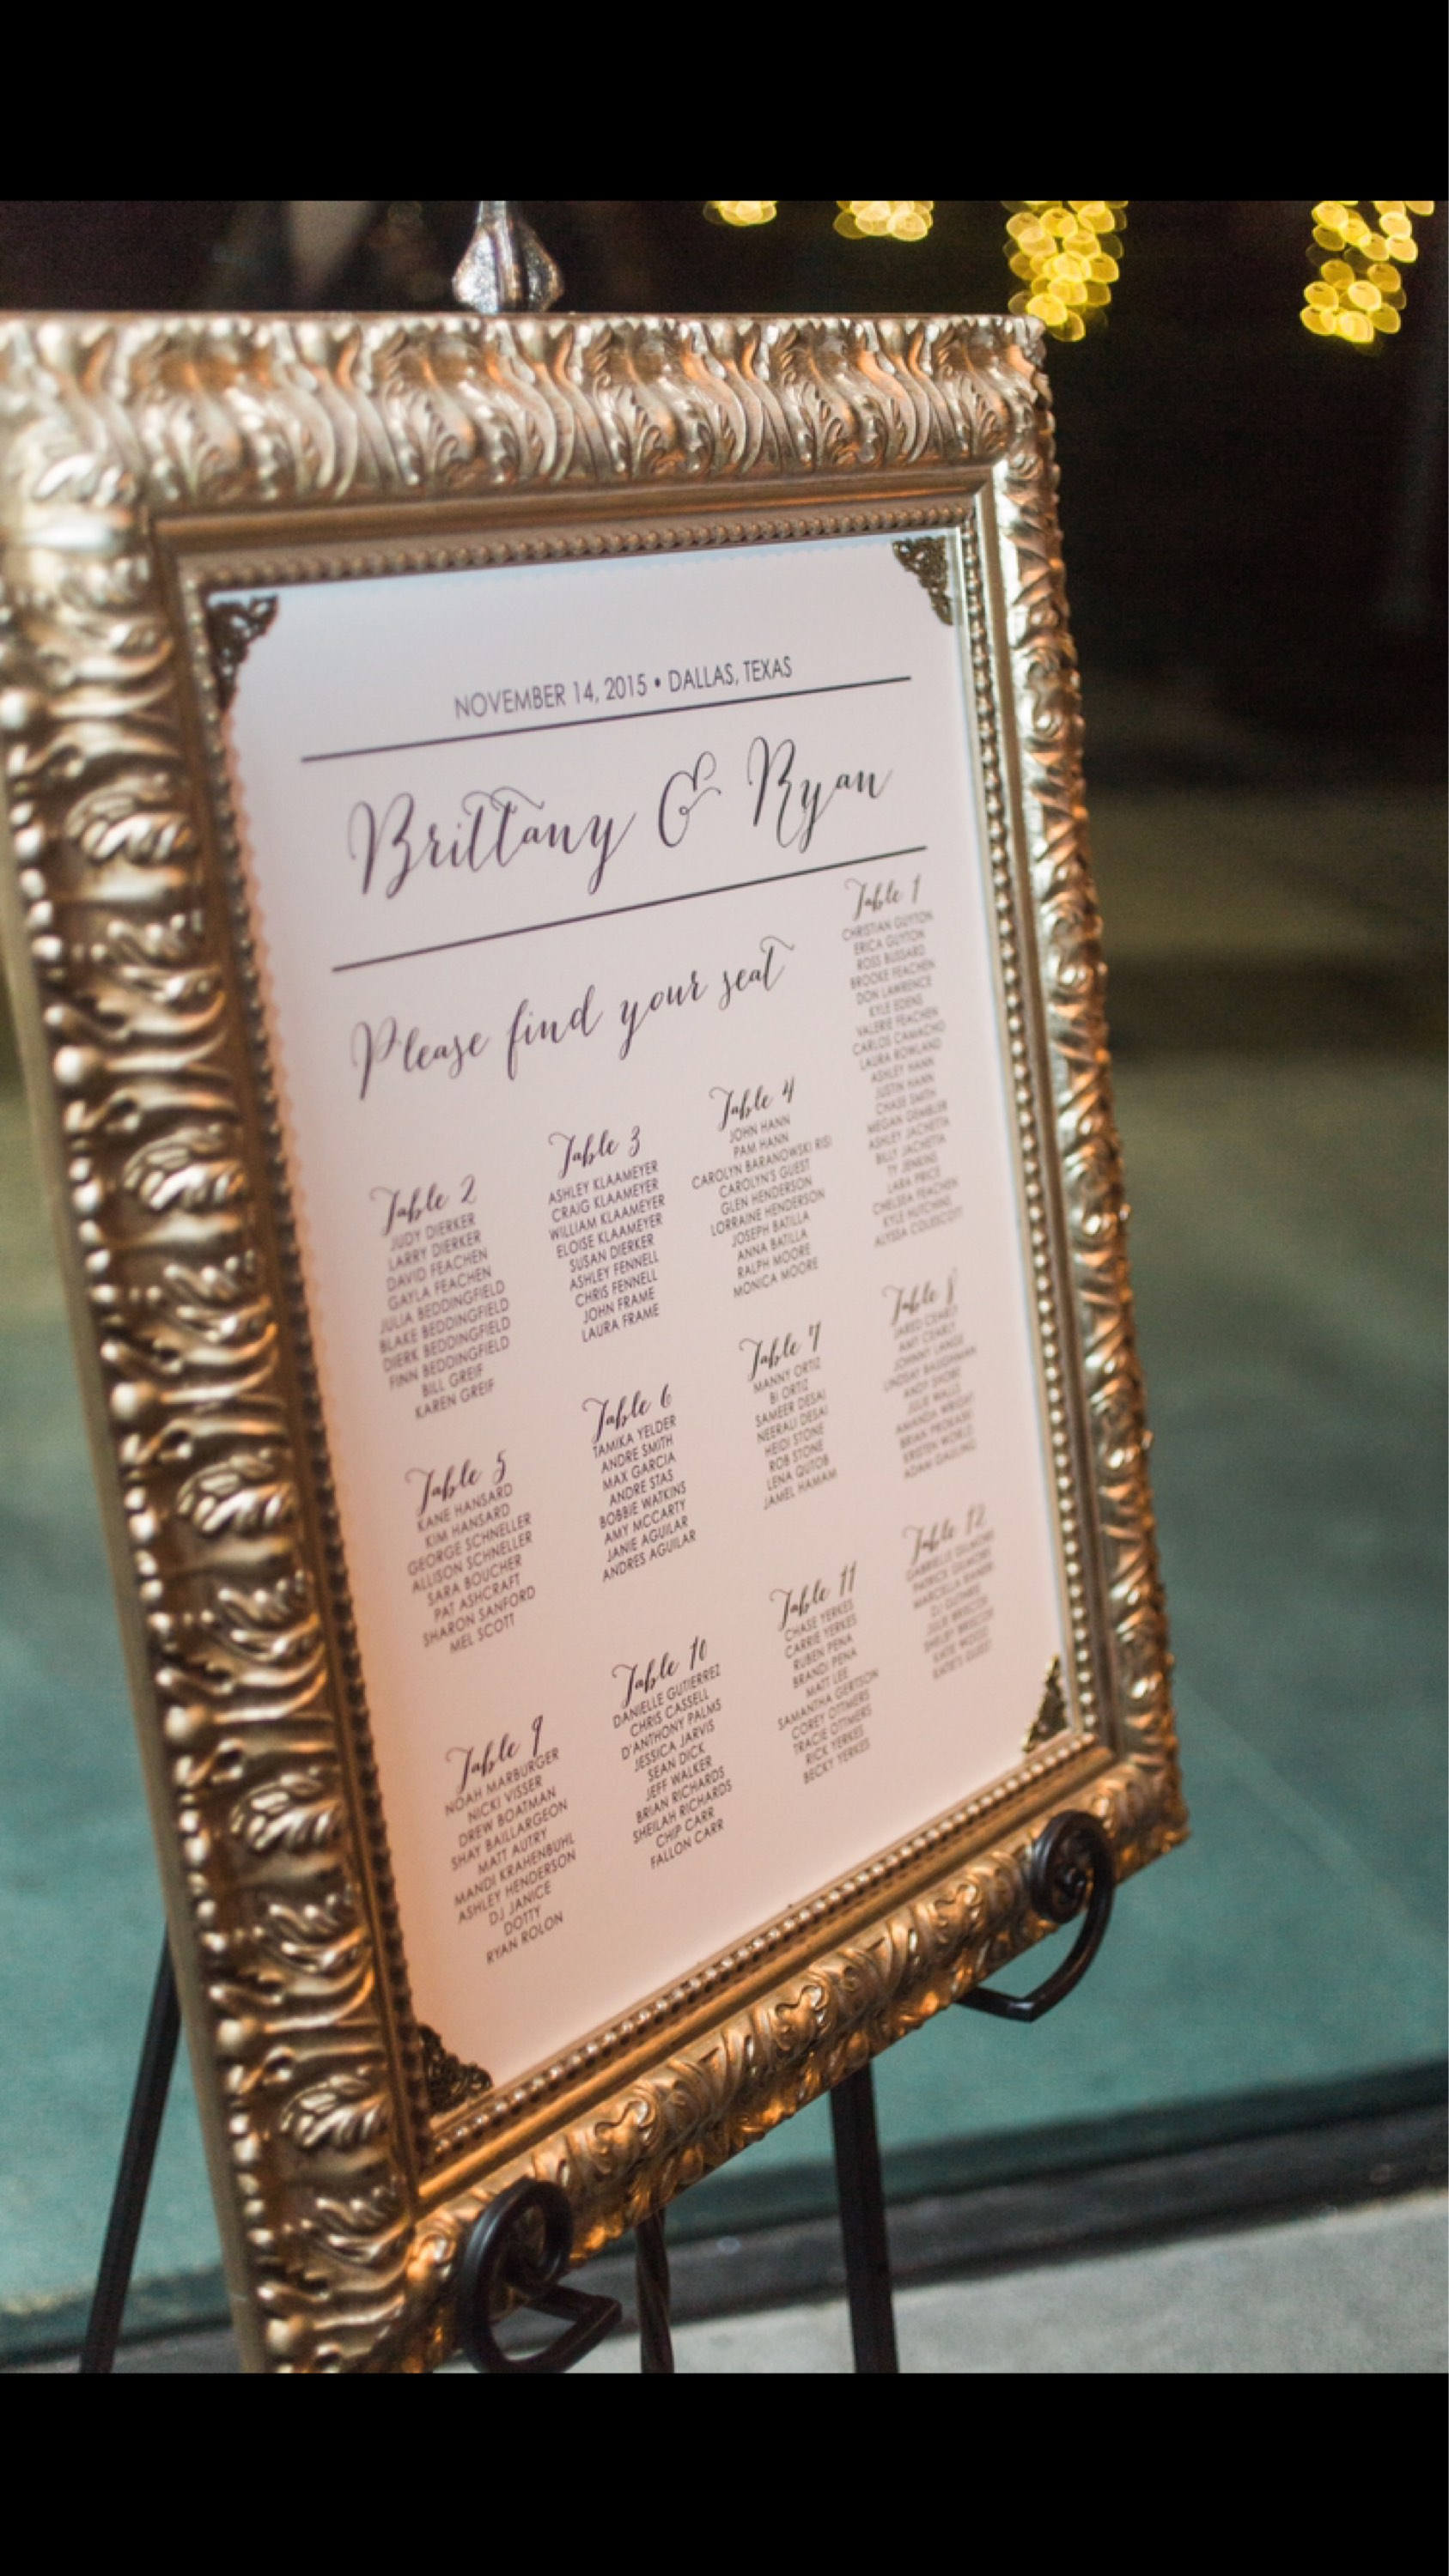 NOVEMBER 14, 2015 • DALLAS, TEXAS
Brittany & Ryan
Please find your seat
Table 1
CHRISTIAN GUYTON
ERICA GUYTON
ROSS BUSSARD
BROOKE FEACHEN
DON LAWRENCE
KYLE EDENS
VALERIE FEACHEN
CARLOS CAMACHO
LAURA ROWLAND
ASHLEY HANN
JUSTIN HANN
CHASE SMITH
MEGAN GEMBLER
ASHLEY JACHETTA
BILLY JACHETTA
TY JENKINS
LARA PRICE
CHELSEA FEACHEN
KYLE HUTCHINS
ALYSSA COLESCOTT
Table 2
JUDY DIERKER
LARRY DIERKER
DAVID FEACHEN
GAYLA FEACHEN
JULIA BEDDINGFIELD
BLAKE BEDDINGFIELD
DIERK BEDDINGFIELD
FINN BEDDINGFIELD
BILL GREIF
KAREN GREIF
Table 3
ASHLEY KLAAMEYER
CRAIG KLAAMEYER
WILLIAM KLAAMEYER
ELOISE KLAAMEYER
SUSAN DIERKER
ASHLEY FENNELL
CHRIS FENNELL
JOHN FRAME
LAURA FRAME
Table 4
JOHN HANN
PAM HANN
CAROLYN BARANOWSKI
CAROLYN'S GUEST
GLEN HENDERSON
LORRAINE HENDERSON
JOSEPH BATILLA
ANNA BATILLA
RALPH MOORE
MONICA MOORE
Table 5
KANE HANSARD
KIM HANSARD
GEORGE SCHNELLER
ALLISON SCHNELLER
SARA BOUCHER
PAT ASHCRAFT
SHARON SANFORD
MEL SCOTT
Table 6
TAMIKA YELDER
ANDRE SMITH
MAX GARCIA
ANDRE STAS
BOBBIE WATKINS
AMY MCCARTY
JANIE AGUILAR
ANDRES AGUILAR
Table 7
MANNY ORTIZ
BI ORTIZ
SAMEER DESAI
NEERALI DESAI
HEIDI STONE
ROB STONE
LENA QUTOB
JAMEL HAMAM
Table 8
JARED
AMY
JOHNNY LANGE
LINDSAY BAUGHMAN
ANDY
JULIE WALLS
AMANDA WRIGHT
BRIAN
KRISTEN WORLD
ADAM
Table 9
NOAH MARBURGER
NICKI VISSER
DREW BOATMAN
SHAY BAILLARGEON
MATT AUTRY
MANDI KRAHENBUHL
ASHLEY HENDERSON
DJ JANICE
DOTTY
RYAN ROLON
Table 10
DANIELLE GUTIERREZ
CHRIS CASSELL
D'ANTHONY PALMS
JESSICA JARVIS
SEAN DICK
JEFF WALKER
BRIAN RICHARDS
SHEILAH RICHARDS
CHIP CARR
FALLON CARR
Table 11
CHASE YERKES
CARRIE YERKES
RUBEN PENA
BRANDI PENA
MATT LEE
SAMANTHA GERTSON
COREY OTTMERS
TRACIE OTTMERS
RICK YERKES
BECKY YERKES
Table 12